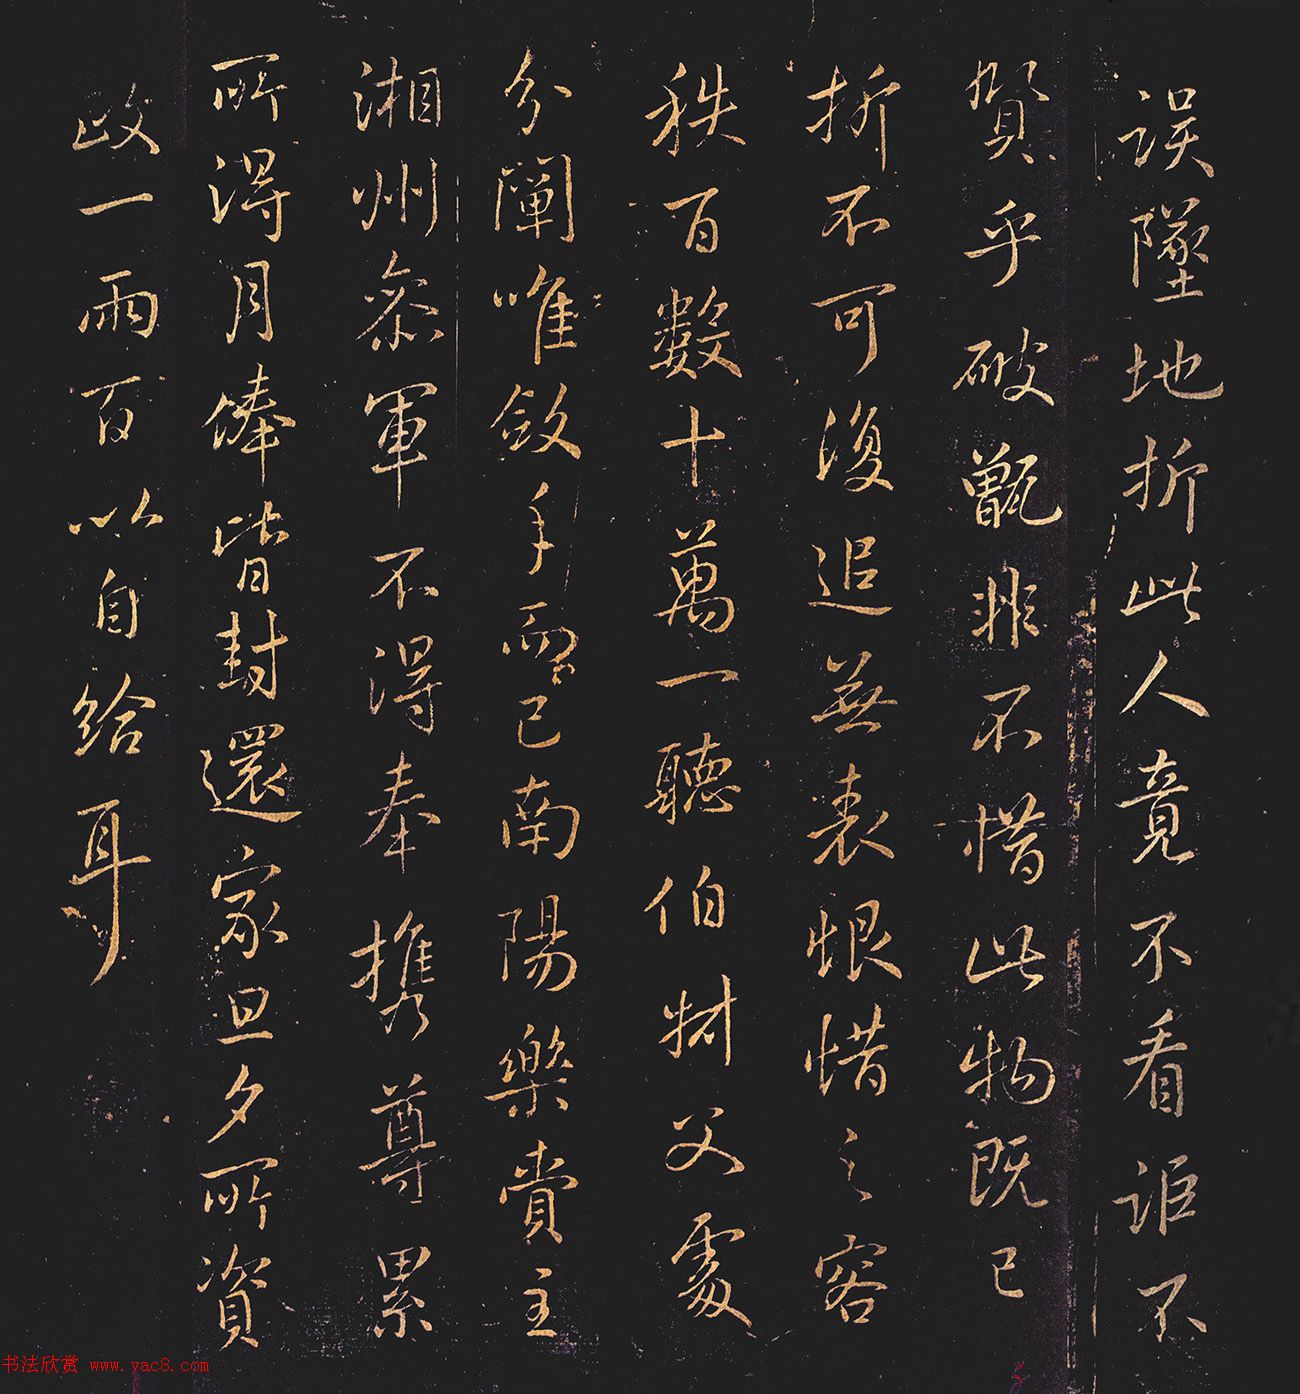 误墜地折此人竟不看詎不
賢乎破甑非不惜此物既已
折不可復追並表恨惜之容
秩百數十萬一聽伯父處
分闡唯斂手而已南陽樂賞主
湘州參軍不得奉攜尊累
所得月俸皆封還家旦夕所資
政一兩百以自給耳
书法欣赏 www.yac8.com